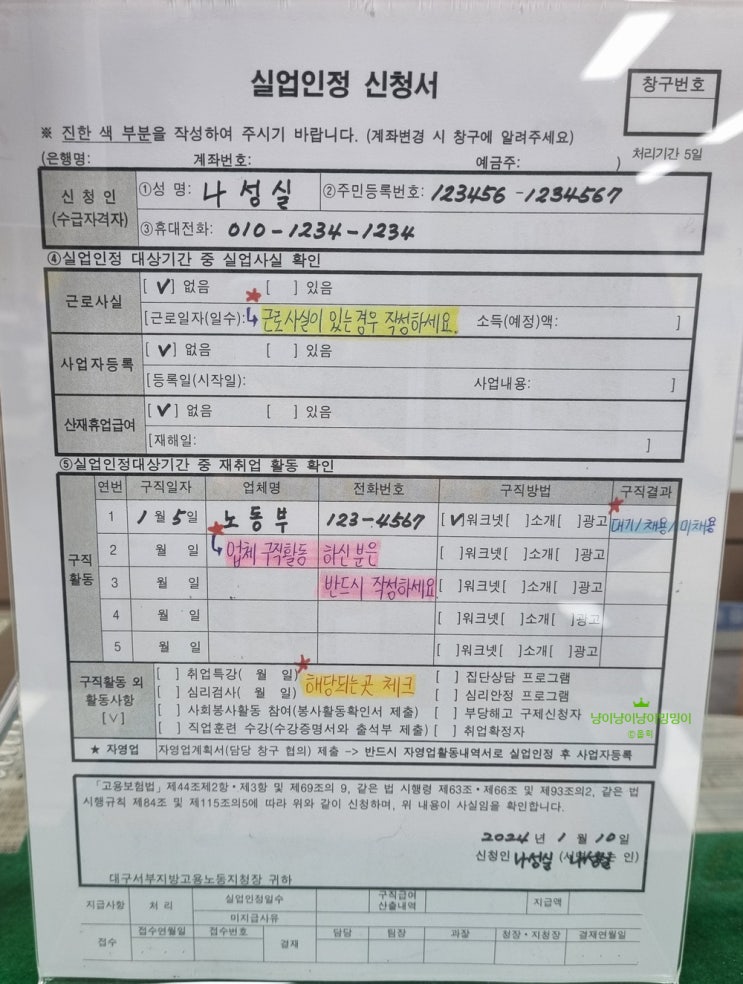 실업인정 신청서
창구번호
※ 진한 색 부분을 작성하여 주시기 바랍니다. (계좌변경 시 창구에 알려주세요)
처리기간 5일
(은행명: 계좌번호: 예금주: )
신청인
(수급자격자)
①성 명: 나성실 ②주민등록번호: 123456-1234567
③휴대전화: 010-1234-1234
④실업인정 대상기간 중 실업사실 확인
근로사실
[✓] 없음 ★ [ ] 있음
[근로일자(일수): 근로사실이 있는경우 작성하세요. 소득(예정)액: ]
사업자등록
[✓] 없음 [ ] 있음
[등록일(시작일): 사업내용: ]
산재휴업급여
[✓] 없음 [ ] 있음
[재해일: ]
⑤실업인정대상기간 중 재취업 활동 확인
구직
활동
연번 구직일자 업체명 전화번호 구직방법 구직결과
1 1월 5일 노동부 123-4567 [✓]워크넷[ ]소개[ ]광고 대기/채용/미채용
2 월 일 업체 구직활동 하신분은 [ ]워크넷[ ]소개[ ]광고
3 월 일 반드시 작성하세요 [ ]워크넷[ ]소개[ ]광고
4 월 일 [ ]워크넷[ ]소개[ ]광고
5 월 일 [ ]워크넷[ ]소개[ ]광고
구직활동 외
활동사항
[∨]
[ ] 취업특강( 월 일) ★ [ ] 집단상담 프로그램
[ ] 심리검사( 월 일) 해당되는곳 체크 [ ] 심리안정 프로그램
[ ] 사회봉사활동 참여(봉사활동확인서 제출) [ ] 부당해고 구제신청자
[ ] 직업훈련 수강(수강증명서와 출석부 제출) [ ] 취업확정자
냥이냥이냥이멍멍이
★ 자영업 자영업계획서(담당 창구 협의) 제출 -> 반드시 자영업활동내역서로 실업인정 후 사업자등록
「고용보험법」 제44조제2항·제3항 및 제69조의 9, 같은 법 시행령 제63조·제66조 및 제93조의2, 같은 법
시행규칙 제84조 및 제115조의5에 따라 위와 같이 신청하며, 위 내용이 사실임을 확인합니다.
2024 년 1 월 10 일
신청인 나성실
대구서부지방고용노동지청장 귀하
지급사항 처 리 실업인정일수 구직급여
산출내역 지급액
미지급사유
접수 접수연월일 접수번호 결재 담당 팀장 과장 청장·지청장 결재연월일